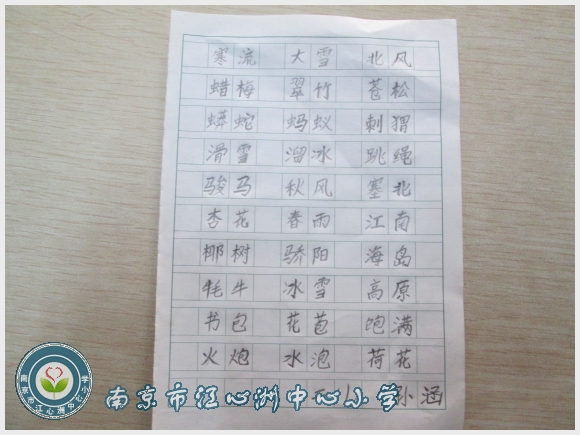 寒流 大雪 北风
蜡梅 翠竹 苍松
蟒蛇 蚂蚁 刺猬
滑雪 溜冰 跳绳
骏马 秋风 塞北
杏花 春雨 江南
椰树 骄阳 海岛
牦牛 冰雪 高原
书包 花苞 饱满
火炮 水泡 荷花
孙涵
南京市江心洲中心小学
南京市江心洲中心小学